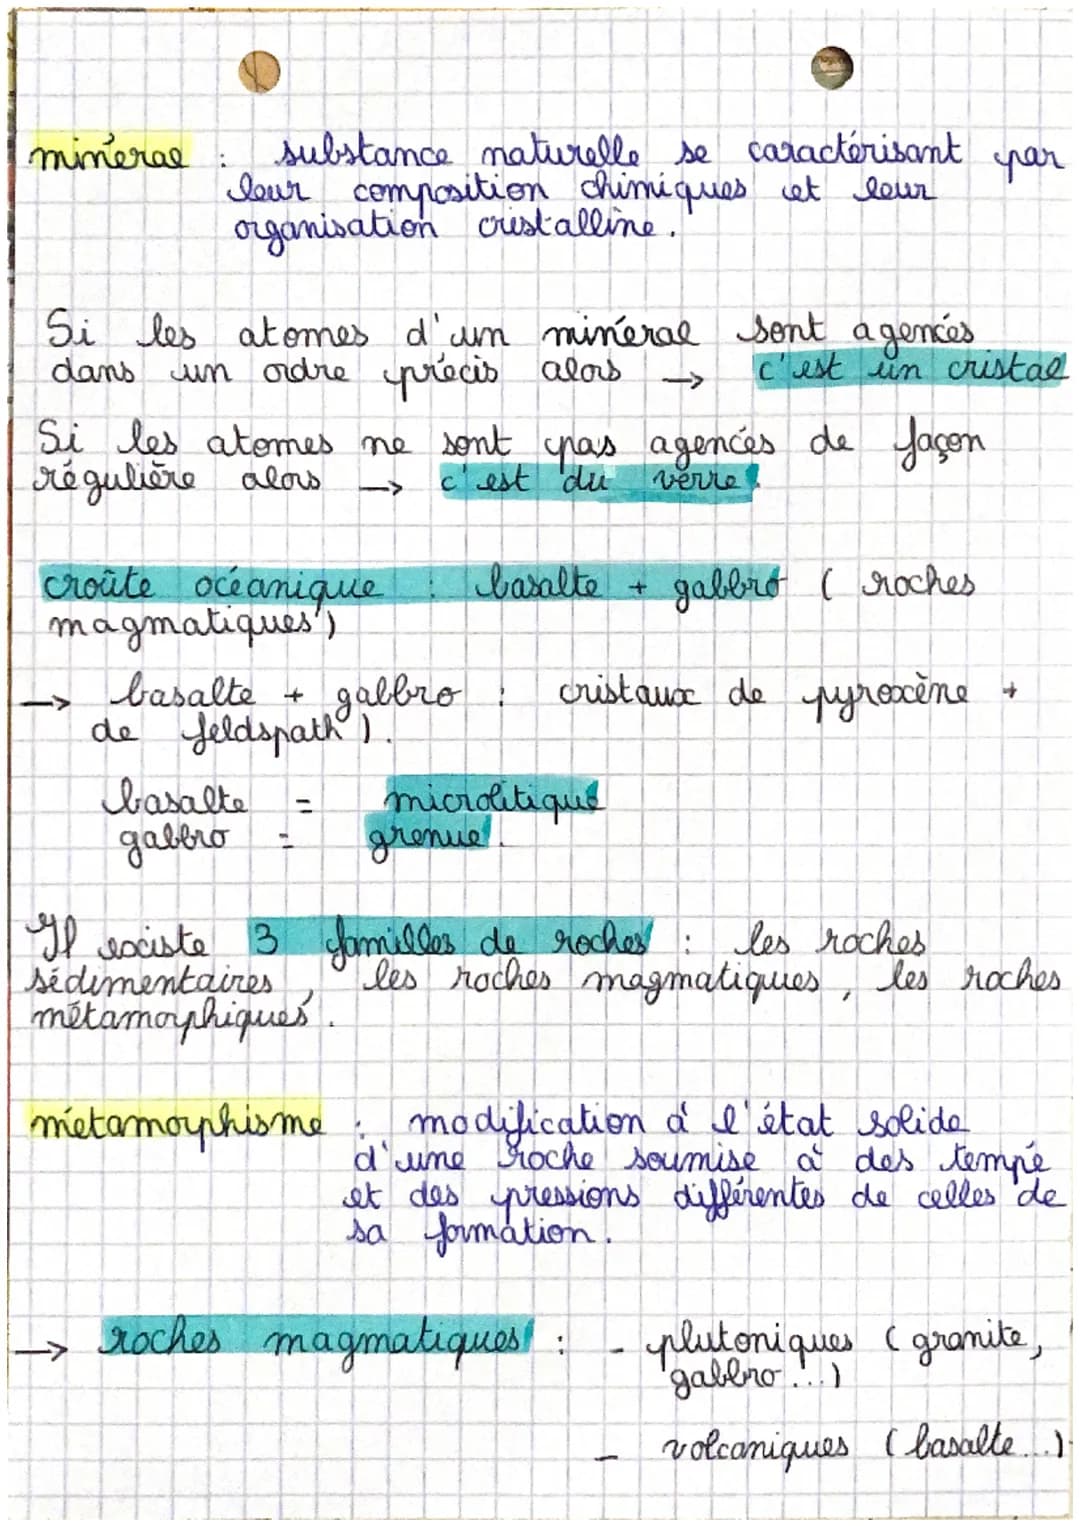 minéral : substance naturelle se caractérisant par
leur composition chimiques et leur
organisation cristalline.
Si les atomes d'un minéral sont agencés
dans un ordre précis alors → c'est un cristal
Si les atomes ne sont pas agencés de façon
régulière alors → c'est du verre.
croûte océanique : basalte + gabbro ( roches
magmatiques)
→ basalte + gabbro : cristaux de pyroxène +
de feldspath ).
basalte = microlitique
gabbro = grenue.
Il existe 3 familles de roches : les roches
sédimentaires, les roches magmatiques, les roches
métamorphiques.
métamorphisme : modification à l'état solide
d'une roche soumise à des tempé
et des pressions différentes de celles de
sa formation.
→ roches magmatiques : - plutoniques ( granite,
gabbro...)
- volcaniques ( basalte...)